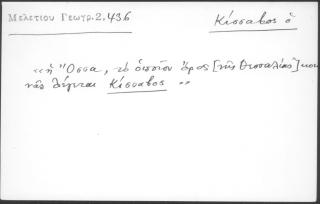 Μελετίου Γεωγρ.2,436
Κίσσαβος ὁ
«ἡ Ὄσσα, τὸ ὁποῖον ὄρος [τῆς Θεσσαλίας] κοι
νῶς λέγεται Κίσσαβος »